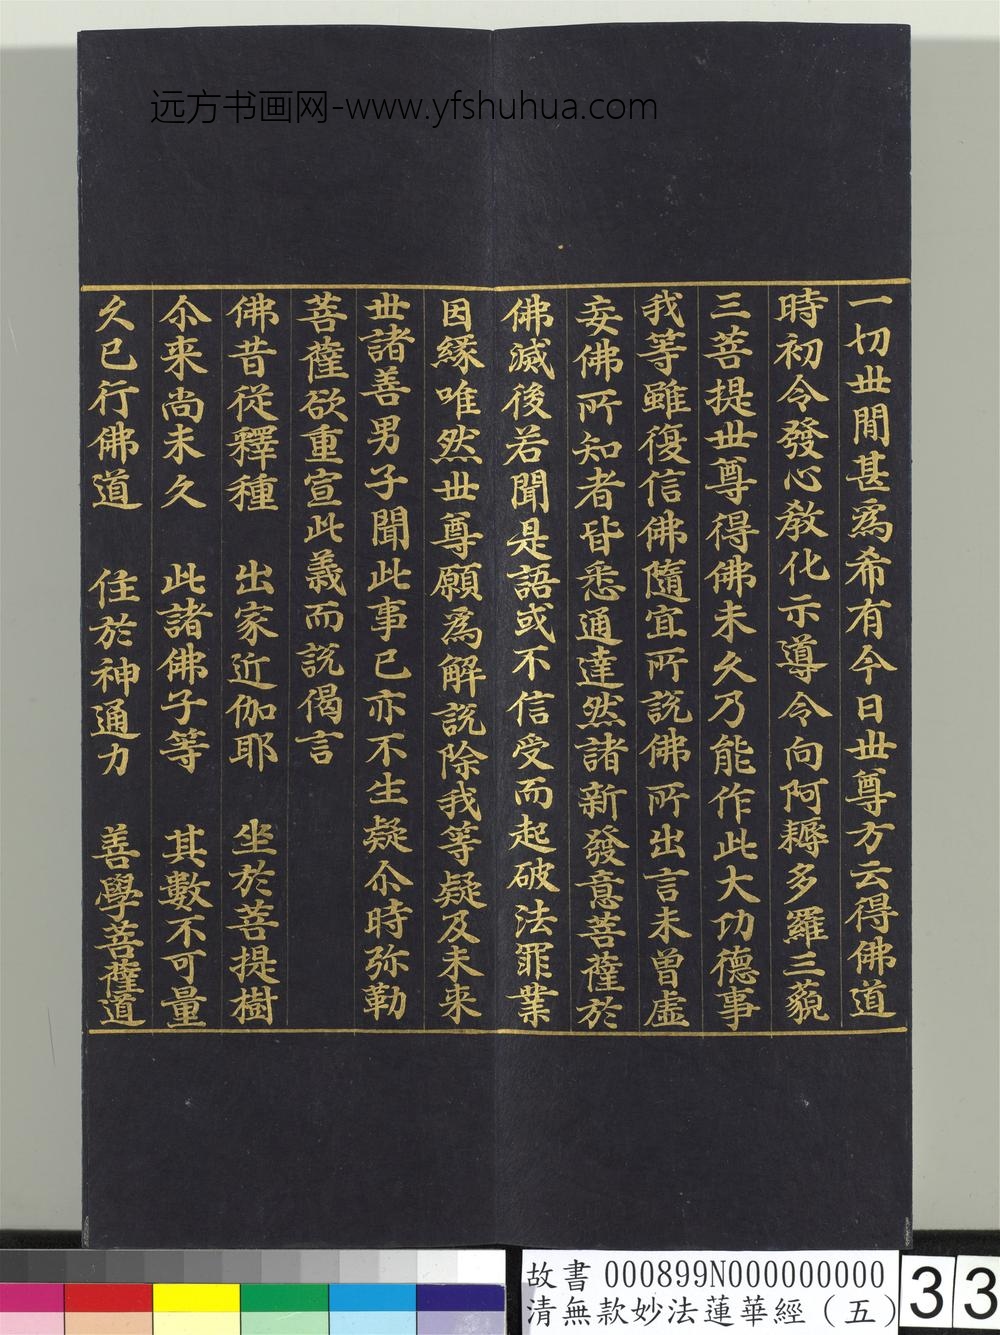 远方书画网-www.yfshuhua.com
一切世間甚為希有今日世尊方云得佛道
時初令發心教化示導令向阿耨多羅三藐
三菩提世尊得佛未久乃能作此大功德事
我等雖復信佛隨宜所說佛所出言未曾虛
妄佛所知者皆悉通達然諸新發意菩薩於
佛滅後若聞是語或不信受而起破法罪業
因緣唯然世尊願為解說除我等疑及未來
世諸善男子聞此事已亦不生疑尒時弥勒
菩薩欲重宣此義而說偈言
佛昔從釋種 出家近伽耶 坐於菩提樹
尒来尚未久 此諸佛子等 其數不可量
久已行佛道 住於神通力 善學菩薩道
故書 000899N000000000
清無款妙法蓮華經（五）
33